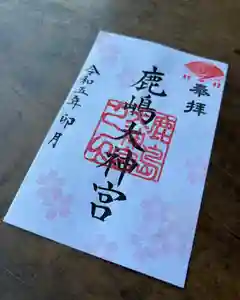 奉拝
鹿嶋大神宮
令和五年 卯月